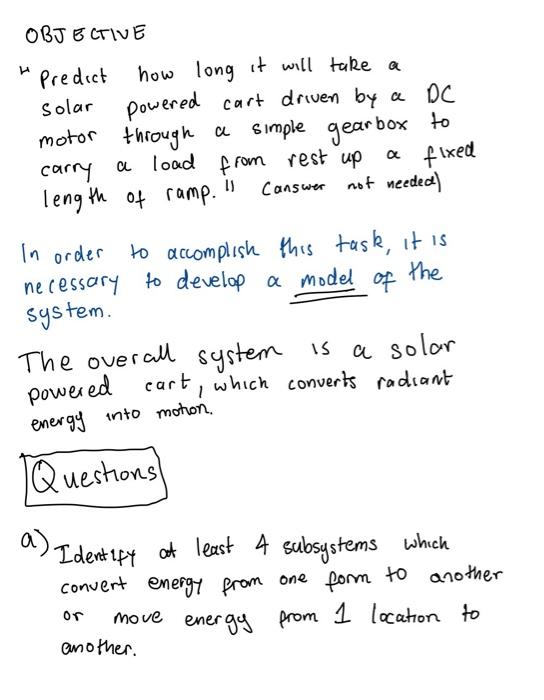 OBJECTIVE
"Predict how long it will take a
solar powered cart driven by a DC
motor through a simple gearbox to
carry a load from rest up a fixed
length of ramp." (answer not needed)
In order to accomplish this task, it is
necessary to develop a model of the
system.
The overall system is a solar
powered cart, which converts radiant
energy into motion.
Questions
a) Identify at least 4 subsystems which
convert energy from one form to another
or move energy from 1 location to
another.